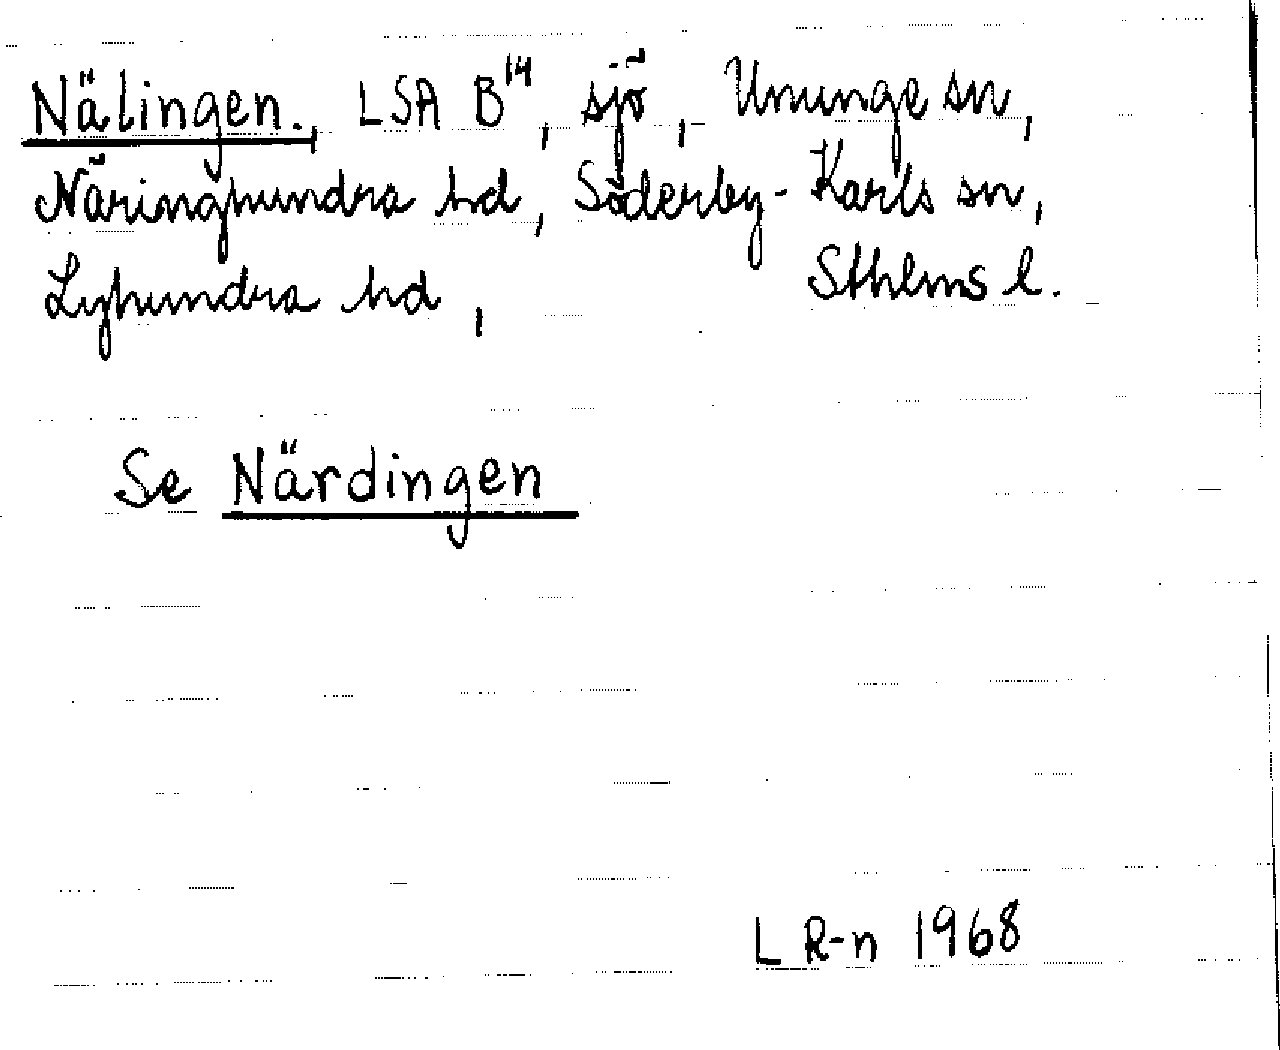 Nälingen., LSA B¹⁴, sjö, Ununge sn,
Näringhundra hd, Söderby-Karls sn,
Lyhundra hd, Sthlms l.
Se Närdingen
L R-n 1968